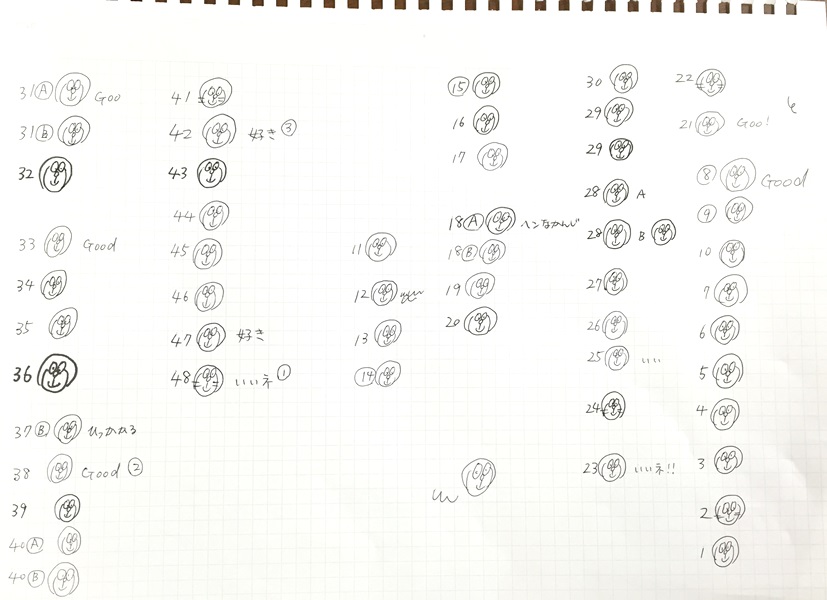 31 Ⓐ Goo
31 Ⓑ
32
33 Good
34
35
36
37 Ⓑ ひっかかる
38 Good ②
39
40 Ⓐ
40 Ⓑ
41
42 好き ③
43
44
45
46
47 好き
48 いいネ ①
11
12
13
⑭
⑮
16
17
18 Ⓐ ヘンなかんじ
18 Ⓑ
19
20
30
29
29
28 A
28 B
27
26
25 いい
24
23 いいネ!!
22
21 Goo!
⑧ Good
⑨
10
7
6
5
4
3
2
1